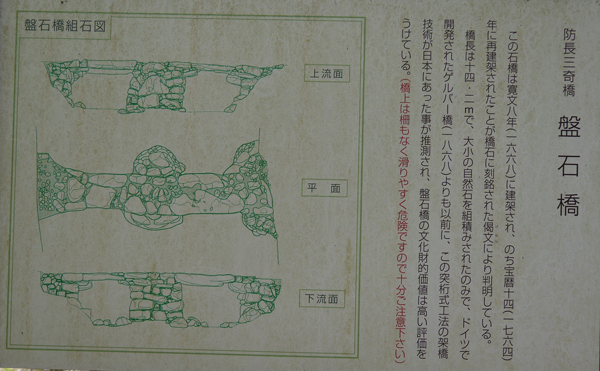 防長三奇橋
盤石橋
この石橋は寛文八年(一六六八)に建架され、のち宝暦十四(一七六四)
年に再建架されたことが橋石に刻銘された偈文により判明している。
橋長は十四・二mで、大小の自然石を組積みされたのみで、ドイツで
開発されたゲルバー橋(一八六八)よりも以前に、この突桁式工法の架橋
技術が日本にあった事が推測され、盤石橋の文化財的価値は高い評価を
うけている。(橋上は柵もなく滑りやすく危険ですので十分ご注意下さい)
盤石橋組石図
上流面
平面
下流面